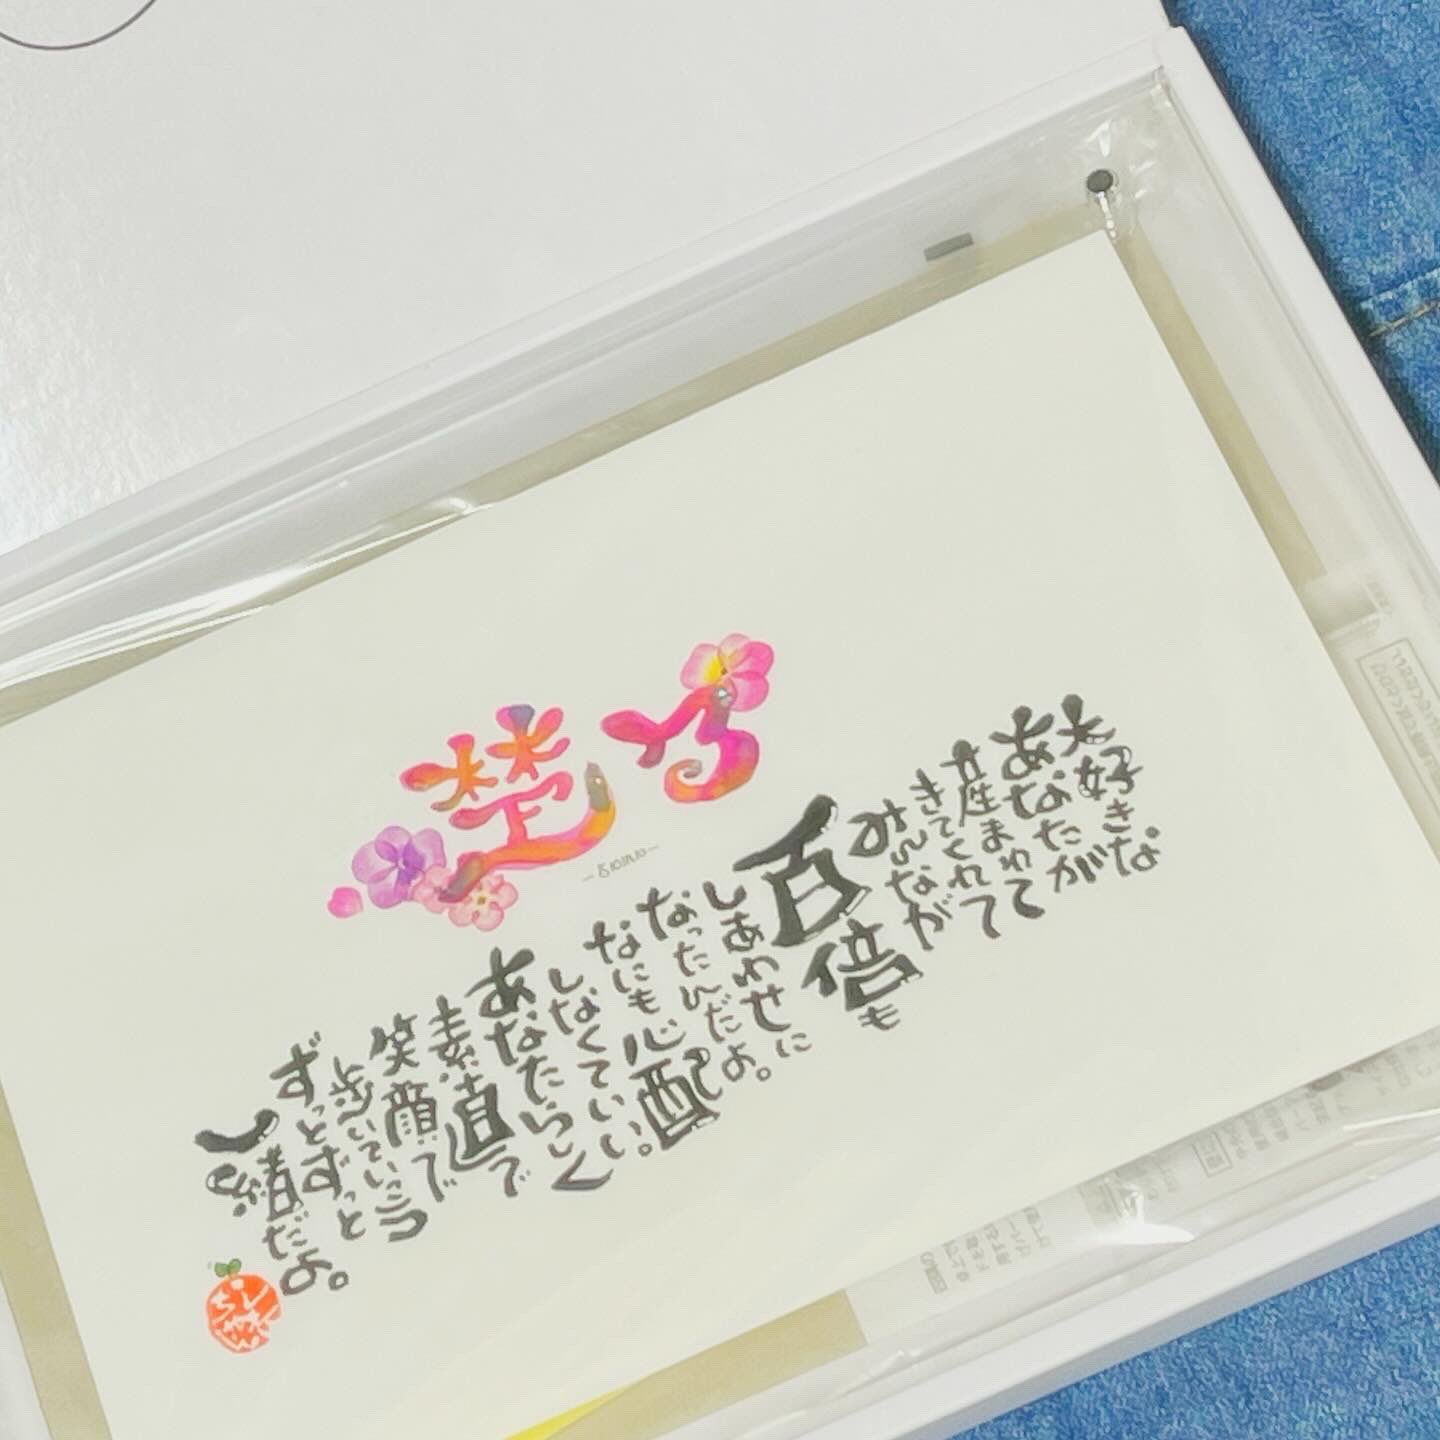 楚乃
大好きな
あなたが
産まれて
きてくれて
みんなが
百倍も
しあわせに
なったんだよ。
なにも心配
しなくていい。
あなたらしく
素直で
笑顔で
歩いていこう
ずっとずっと
一緒だよ。